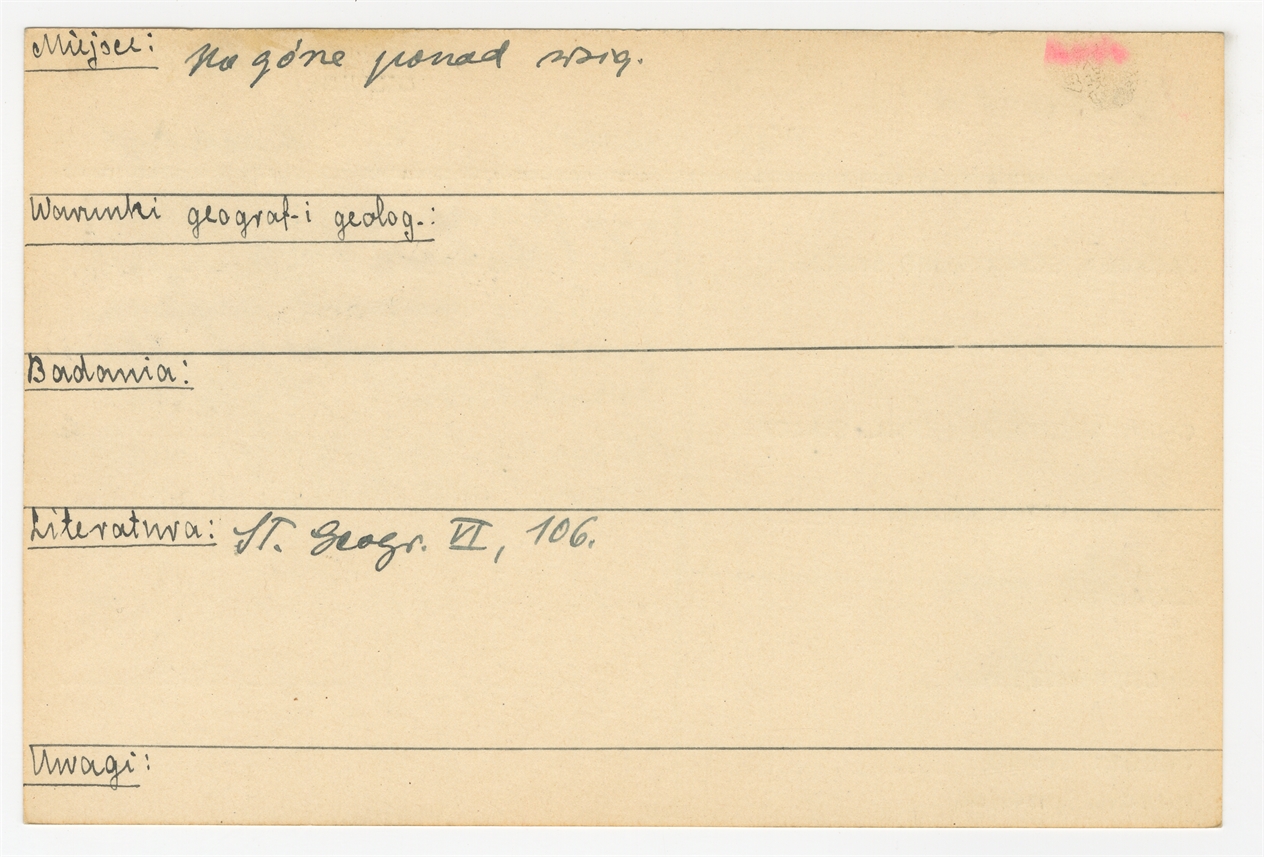 Miejsce: Na górze ponad wsią.
Warunki geograf. i geolog.:
Badania:
Literatura: Sł. Geogr. VI, 106.
Uwagi: